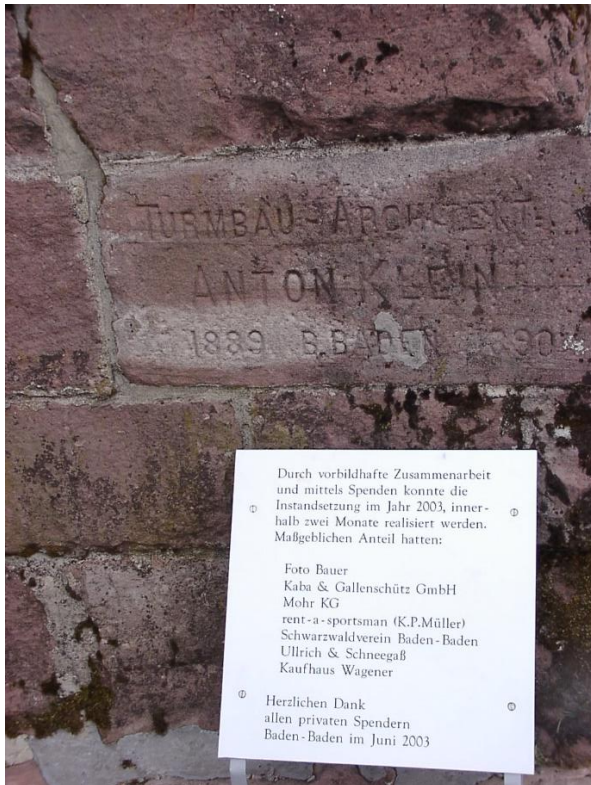 TURMBAU-ARCHITEKT:
ANTON KLEIN
1889 B.BADEN 1890
Durch vorbildhafte Zusammenarbeit
und mittels Spenden konnte die
Instandsetzung im Jahr 2003, inner-
halb zwei Monate realisiert werden.
Maßgeblichen Anteil hatten:
Foto Bauer
Kaba & Gallenschütz GmbH
Mohr KG
rent-a-sportsman (K.P.Müller)
Schwarzwaldverein Baden-Baden
Ullrich & Schneegaß
Kaufhaus Wagener
Herzlichen Dank
allen privaten Spendern
Baden-Baden im Juni 2003